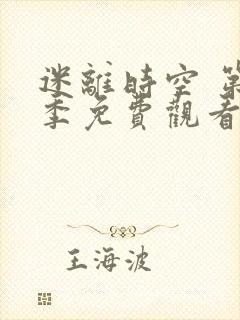 迷離時空 第
季免費觀看
王海波